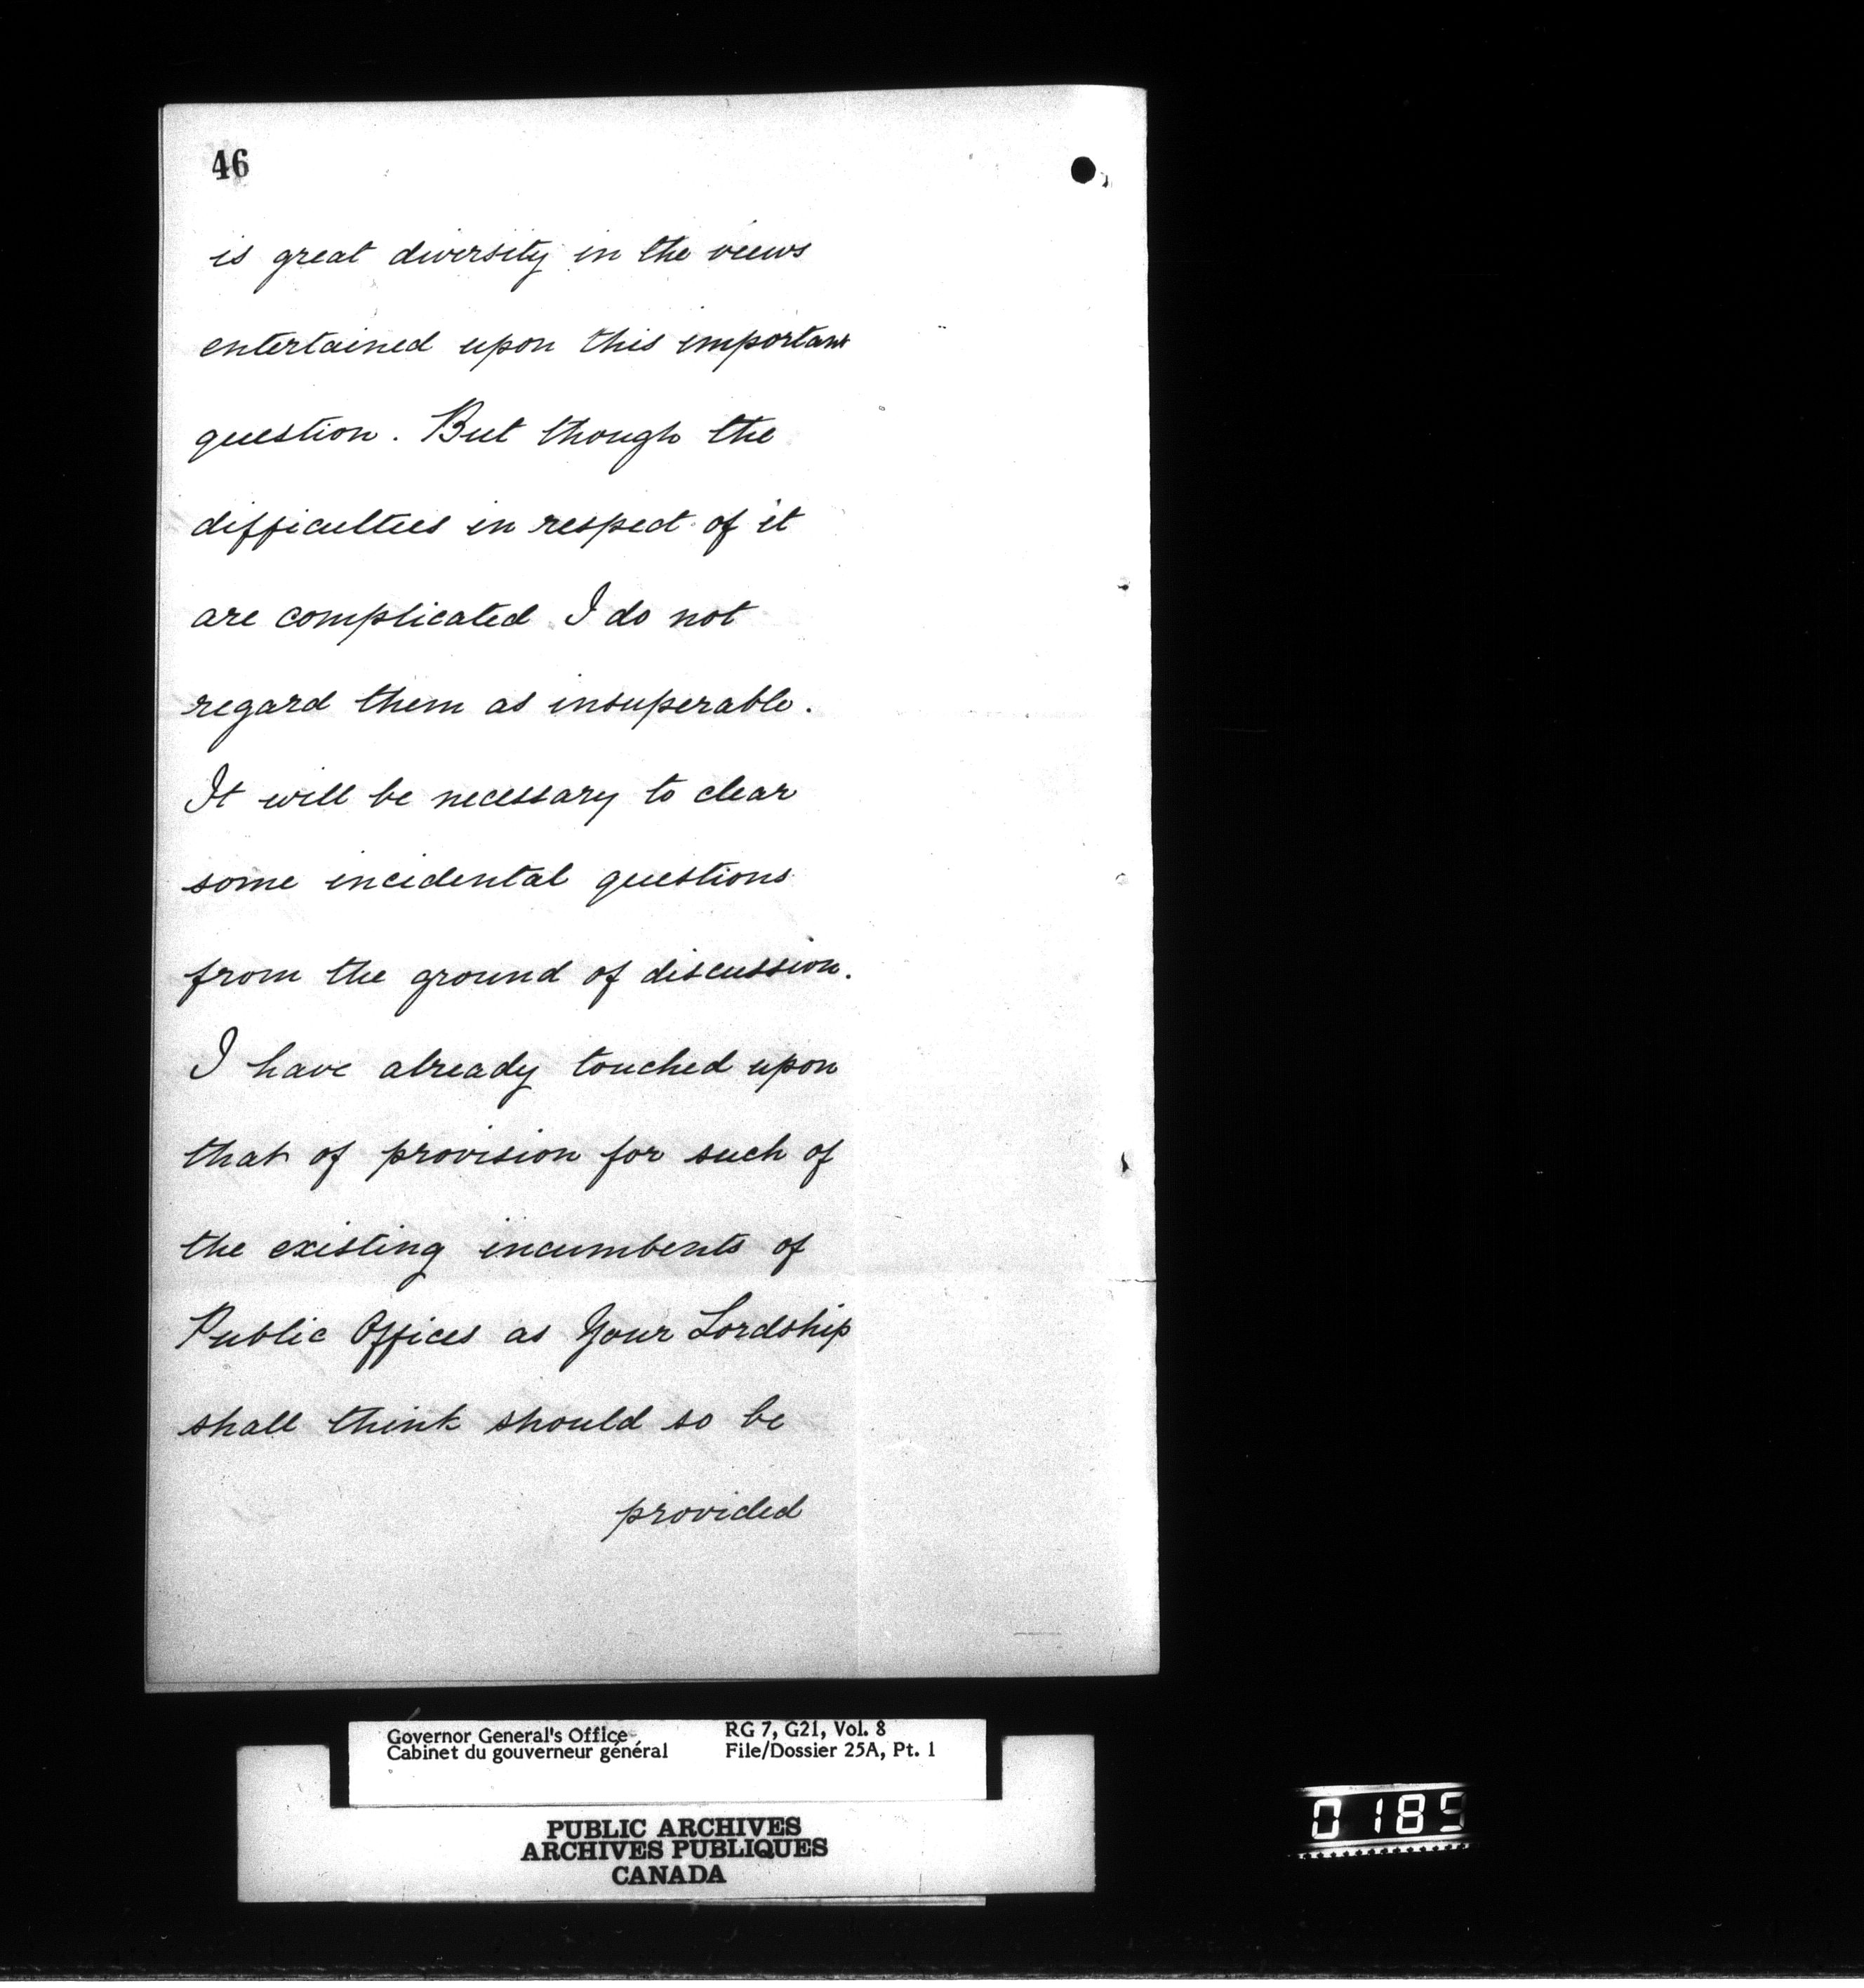 46
is great diversity in the views
entertained upon this important
question. But though the
difficulties in respect of it
are complicated I do not
regard them as insuperable.
It will be necessary to clear
some incidental questions
from the ground of discussion.
I have already touched upon
that of provision for such of
the existing incumbents of
Public Offices as Your Lordship
shall think should so be
provided
Governor General's Office
Cabinet du gouverneur général
RG 7, G21, Vol. 8
File/Dossier 25A, Pt. 1
PUBLIC ARCHIVES
ARCHIVES PUBLIQUES
CANADA
0185